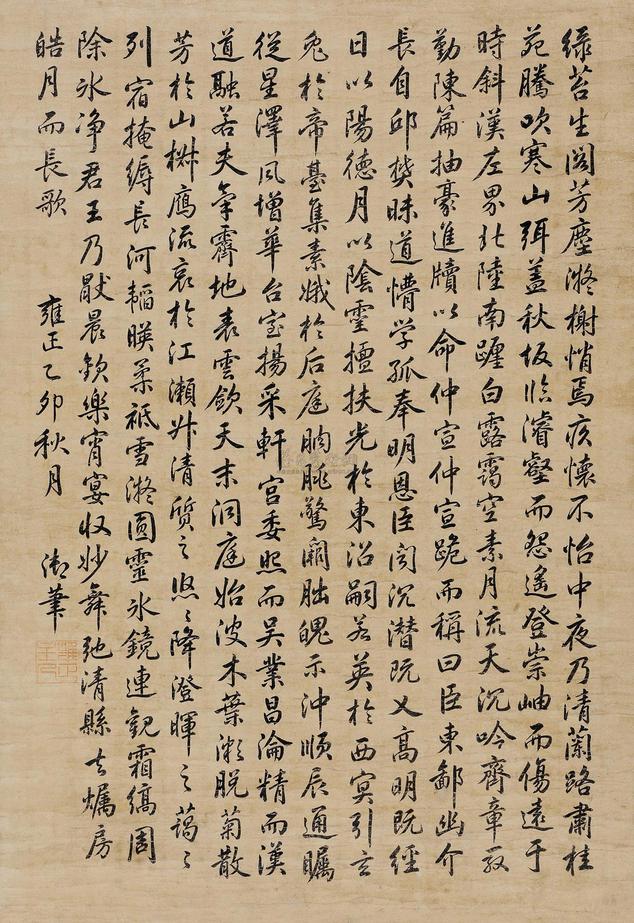 绿苔生閣芳塵凝榭悄焉疚懷不怡中夜乃清蘭路肅桂
苑騰吹寒山弭蓋秋坂臨濬壑而怨遙登崇岫而傷遠于
時斜漢左界北陸南躔白露靄空素月流天沉吟齊章殷
勤陳篇抽豪進牘以命仲宣仲宣跪而稱曰臣東鄙幽介
長自邱樊昧道懵学孤奉明恩臣聞沉潛既义高明既經
日以陽德月以陰靈擅扶光於東沼嗣若英於西冥引玄
兔於帝臺集素娥於后庭朒朓驚闕朏魄示沖順辰通矚
從星澤風增華台室揚采軒宮委照而吴業昌淪精而漢
道融若夫氣霽地表雲歛天末洞庭始波木葉微脱菊散
芳於山椒鴈流哀於江瀬升清質之悠〻降澄暉之藹〻
列宿掩縟長河韜暎柔祗雪凝圓靈氷鏡連觀霜縞周
除氷净君王乃猒晨歡樂宵宴收妙舞弛清縣去爥房
皓月而長歌
雍正乙卯秋月 御筆